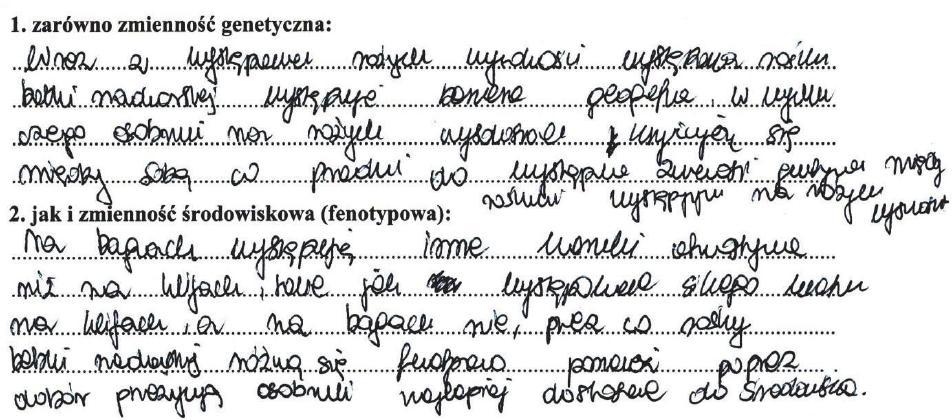 1. zarówno zmienność genetyczna:
Wraz z występowaniem różnych wysokości występowania roślin
babki nadmorskiej występuje bariera geograficzna, w wyniku
czego osobniki na różnych wysokościach krzyżują się
między sobą co prowadzi do występowania zmienności genetycznej między
roślinami występującymi na różnych wysokościach
2. jak i zmienność środowiskowa (fenotypowa):
Na bagnach występują inne warunki
niż na klifach, takie jak występowanie silnego wiatru
na klifach, a na bagnach nie, przez co rośliny
babki nadmorskiej różnią się fenotypowo ponieważ poprzez
dobór przeżywają osobniki najlepiej dostosowane do środowiska.